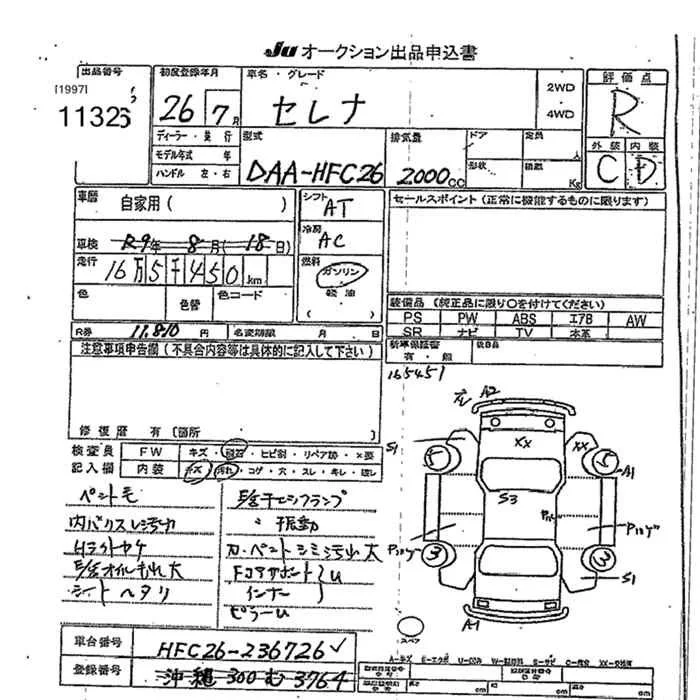 JU オークション出品申込書
出品番号
[1997]
11326
初度登録年月
26 7月
車名・グレード
セレナ
2WD
4WD
評価点
R
外装 内装
C D
ディーラー・並行
モデル年式 年
ハンドル 左・右
型式
DAA-HFC26
排気量
2000cc
ドア
定員
人
形状
積載
Kg
車歴
自家用( )
シフト
AT
冷房
AC
車検
R9年8月18日)
走行
16万5千450km
燃料
ガソリン
軽油
( )
色
色替
色コード
R券
11,810円
名変期限 月 日
セールスポイント(正常に機能するものに限ります)
装備品(純正品に限り○を付けてください)
PS PW ABS エアB AW
SR ナビ TV 本革
新車保証書
有・無
後日品
注意事項申告欄(不具合内容等は具体的に記入して下さい)
修復歴 有(箇所
165451
検査員
記入欄
FW キズ・飛石・ヒビ割・リペア跡・×要
内装 キズ・汚れ・コゲ・穴・スレ・キレ・破レ
A2
S1
XX
XX
5
5
A1
S3
3
3
S1
A1
スペア
内バクスレ汚れ
Hライトヤケ
シートヘタリ
〃 振動
Fコアサポート
インナー
U
ピラーU
車台番号
HFC26-236726
登録番号
沖縄 300 む 3764
A-キズ E-エクボ U-凹み W-補修跡 S-サビ C-腐食 XX-交換済